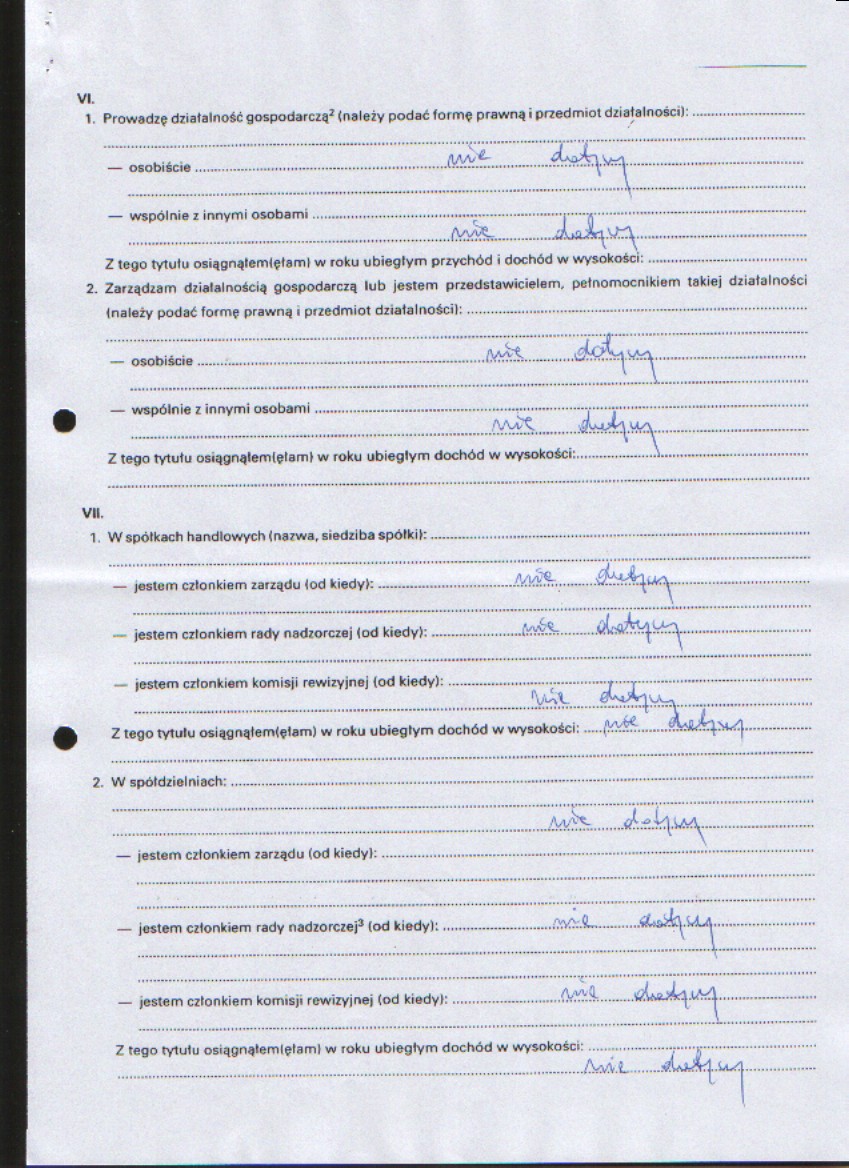 VI.
1. Prowadzę działalność gospodarczą² (należy podać formę prawną i przedmiot działalności):
— osobiście nie dotyczy
— wspólnie z innymi osobami
nie dotyczy
Z tego tytułu osiągnąłem(ęłam) w roku ubiegłym przychód i dochód w wysokości:
2. Zarządzam działalnością gospodarczą lub jestem przedstawicielem, pełnomocnikiem takiej działalności
(należy podać formę prawną i przedmiot działalności):
— osobiście nie dotyczy
— wspólnie z innymi osobami
nie dotyczy
Z tego tytułu osiągnąłem(ęłam) w roku ubiegłym dochód w wysokości:
VII.
1. W spółkach handlowych (nazwa, siedziba spółki):
— jestem członkiem zarządu (od kiedy): nie dotyczy
— jestem członkiem rady nadzorczej (od kiedy): nie dotyczy
— jestem członkiem komisji rewizyjnej (od kiedy):
nie dotyczy
Z tego tytułu osiągnąłem(ęłam) w roku ubiegłym dochód w wysokości: nie dotyczy
2. W spółdzielniach:
nie dotyczy
— jestem członkiem zarządu (od kiedy):
— jestem członkiem rady nadzorczej³ (od kiedy): nie dotyczy
— jestem członkiem komisji rewizyjnej (od kiedy): nie dotyczy
Z tego tytułu osiągnąłem(ęłam) w roku ubiegłym dochód w wysokości:
nie dotyczy